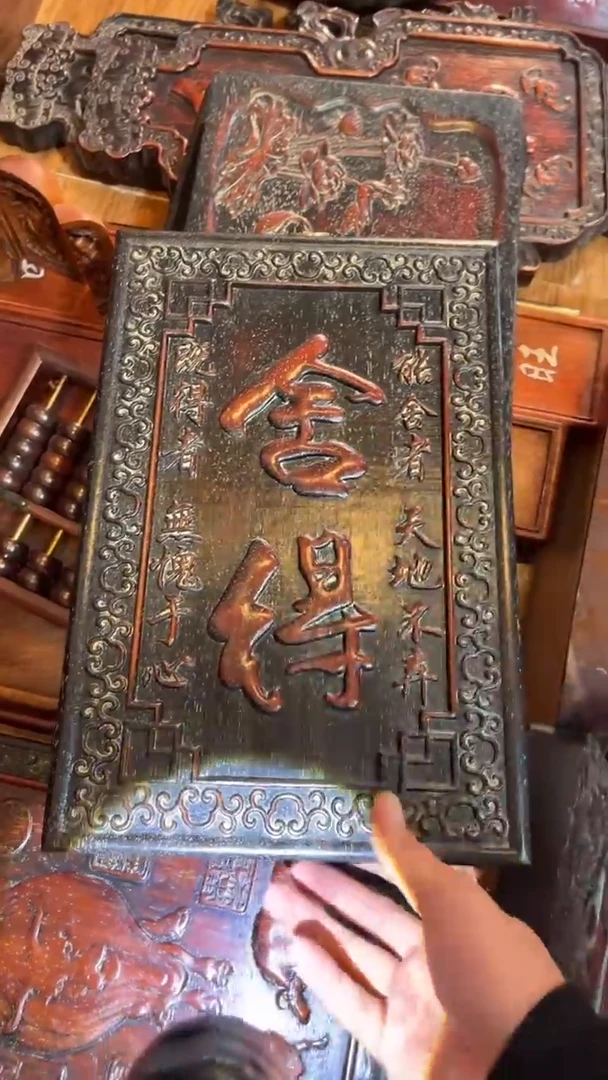 能舍者 天地不弃
舍得
既得者 無愧于心
旺